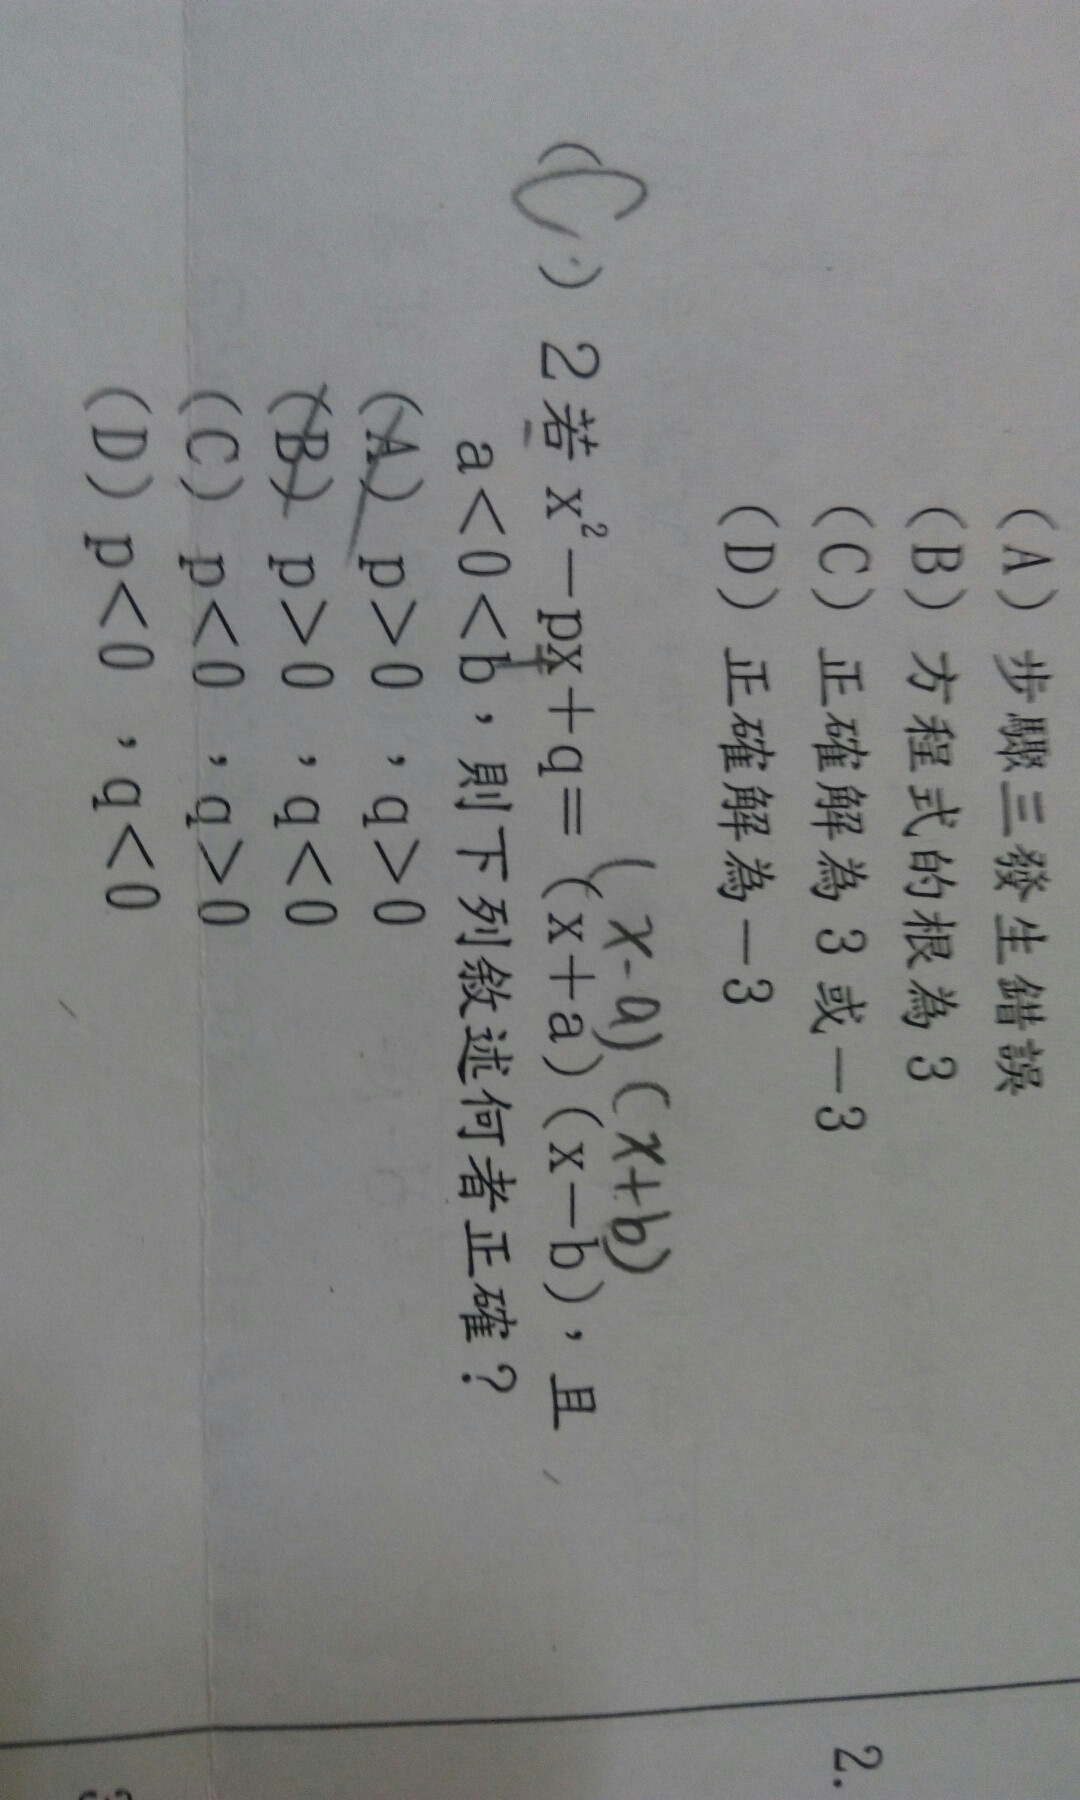 (A) 步驟三發生錯誤
(B) 方程式的根為 3
(C) 正確解為 3 或 -3
(D) 正確解為 -3
(x-a)(x+b)
(C) 2 若 x²-px+q=(x+a)(x-b),且
a<0<b,則下列敘述何者正確?
(A) p>0,q>0
(B) p>0,q<0
(C) p<0,q>0
(D) p<0,q<0
2.